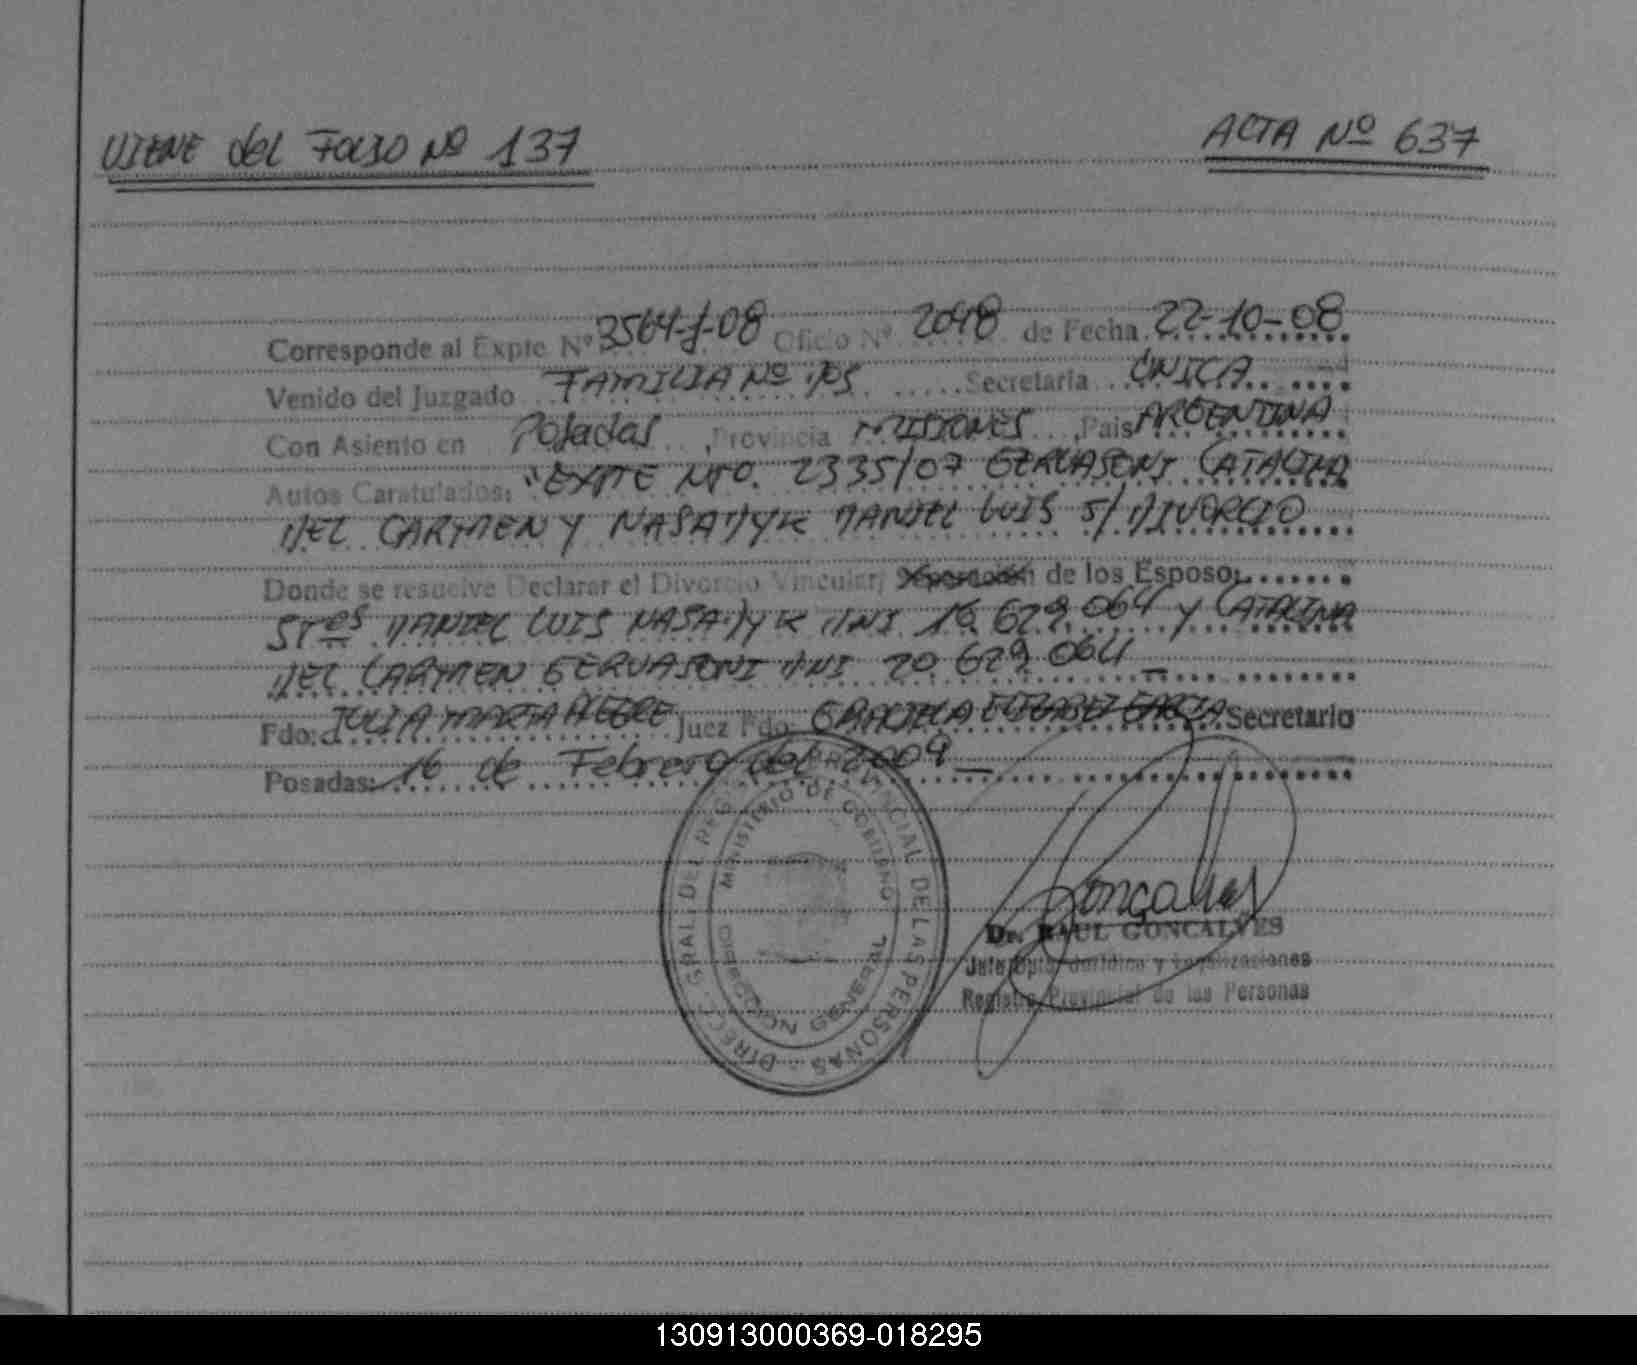 VIENE del FOLIO Nº 137
ACTA Nº 637
Corresponde al Expte Nº 3564-J-08 Oficio Nº 2048 de Fecha 22-10-08
Venido del Juzgado FAMILIA Nº Secretaria ÚNICA
Con Asiento en Posadas, Provincia MISIONES, Pais ARGENTINA
Autos Caratulados: "EXPTE NRO. 2335/07 GERVASONI CATALINA
DEL CARMEN Y NASADYK DANIEL LUIS S/ DIVORCIO
Donde se resuelve Declarar el Divorcio Vincular, de los Esposo:
Sres DANIEL LUIS NASADYK DNI 16.629.064 y CATALINA
DEL CARMEN GERVASONI DNI 20.629.064 —
Fdo: JULIA MARTA ALEGRE Juez Fdo: GRACIELA GARCIA Secretario
Posadas: 16 de Febrero del 2009 —
DIRECC. GRAL. DEL REG. PROVINCIAL DE LAS PERSONAS
MINISTERIO DE GOBIERNO
DIRECCION GENERAL
Goncalves
Dr. RAUL GONCALVES
Jefe Dpto. Jurídico y Legalizaciones
Registro Provincial de las Personas
130913000369-018295